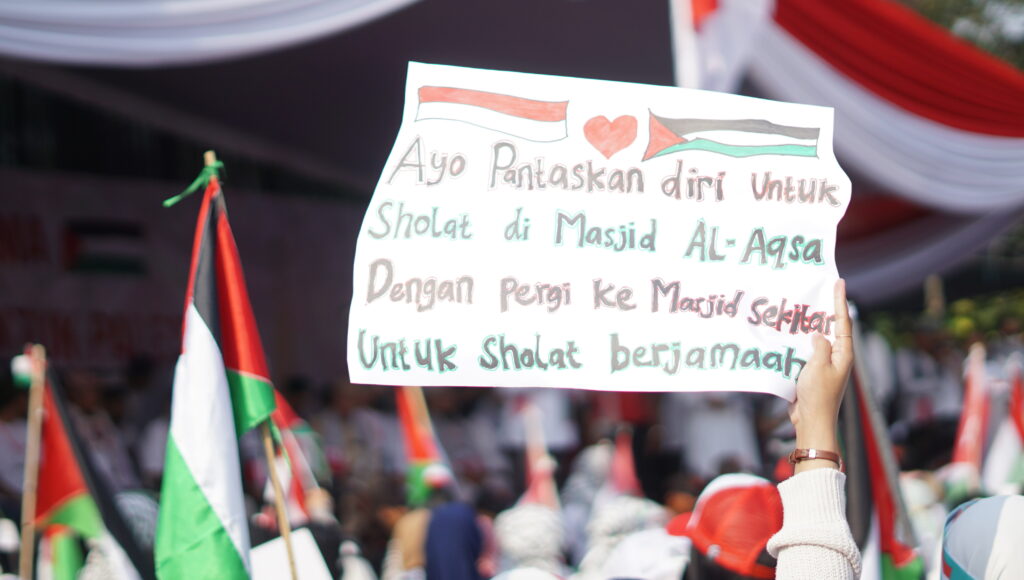 Ayo Pantaskan diri Untuk
Sholat di Masjid AL-Aqsa
Dengan pergi ke Masjid Sekitar
Untuk Sholat berjamaah